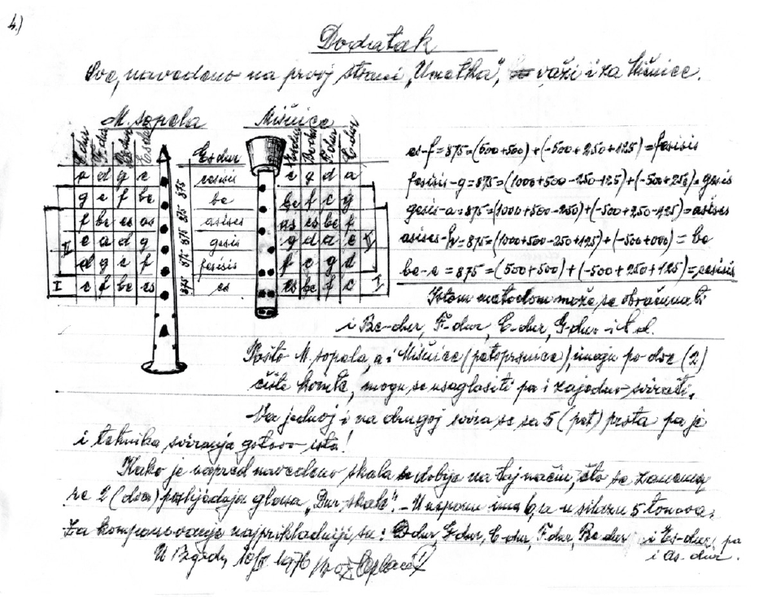 4.)
Dodatak
Sve, navedeno na prvoj strani „Umetka", važi i za Mišnice.
M. sopela Mišnice
C-dur F-dur Es-dur Es-dur Bo-dur F-dur C-dur
a d g c 875 ceisis c g d a
g c f be 875 be be f c g
f be es as 875 asisis as es be f
e a d g 875 gisis g d a e
d g c f 875 fesisis f c g d
c f be es 875 es es be f c
II I II I
es-f=875=(500+500)+(-500+250+125)=fesisis
fesisis-g=875=(1000+500-250-125)+(-500+250)=gesis
gesis-a=875=(1000+500-250)+(-500+250-125)=asises
asises-h=875=(1000+500-250-125)+(-500+000)=be
be-c=875=(500+500)+(-500+250+125)=cesisis
Istom metodom može se obračunati
i Be-dur, F-dur, C-dur, G-dur i t.d.
Pošto M. sopela, a i Mišnice (petoprsnice), imaju po dve (2)
čiste kvinte, mogu se usaglasiti pa i zajedno svirati.
Na jednoj i na drugoj svira se sa 5 (pet) prsta pa je
i tehnika sviranja gotovo ista!
Kako je napred navedeno skala se dobije na taj način, što se
2 (dva) poslijednja glasa „Dur skale". - U usponu ima 6, a u silazu 5 tonova.
Za komponovanje najprikladniji su: D-dur, G-dur, C-dur, F-dur, Be-dur i Es-dur, pa
i As-dur.
U Bgradu 1976